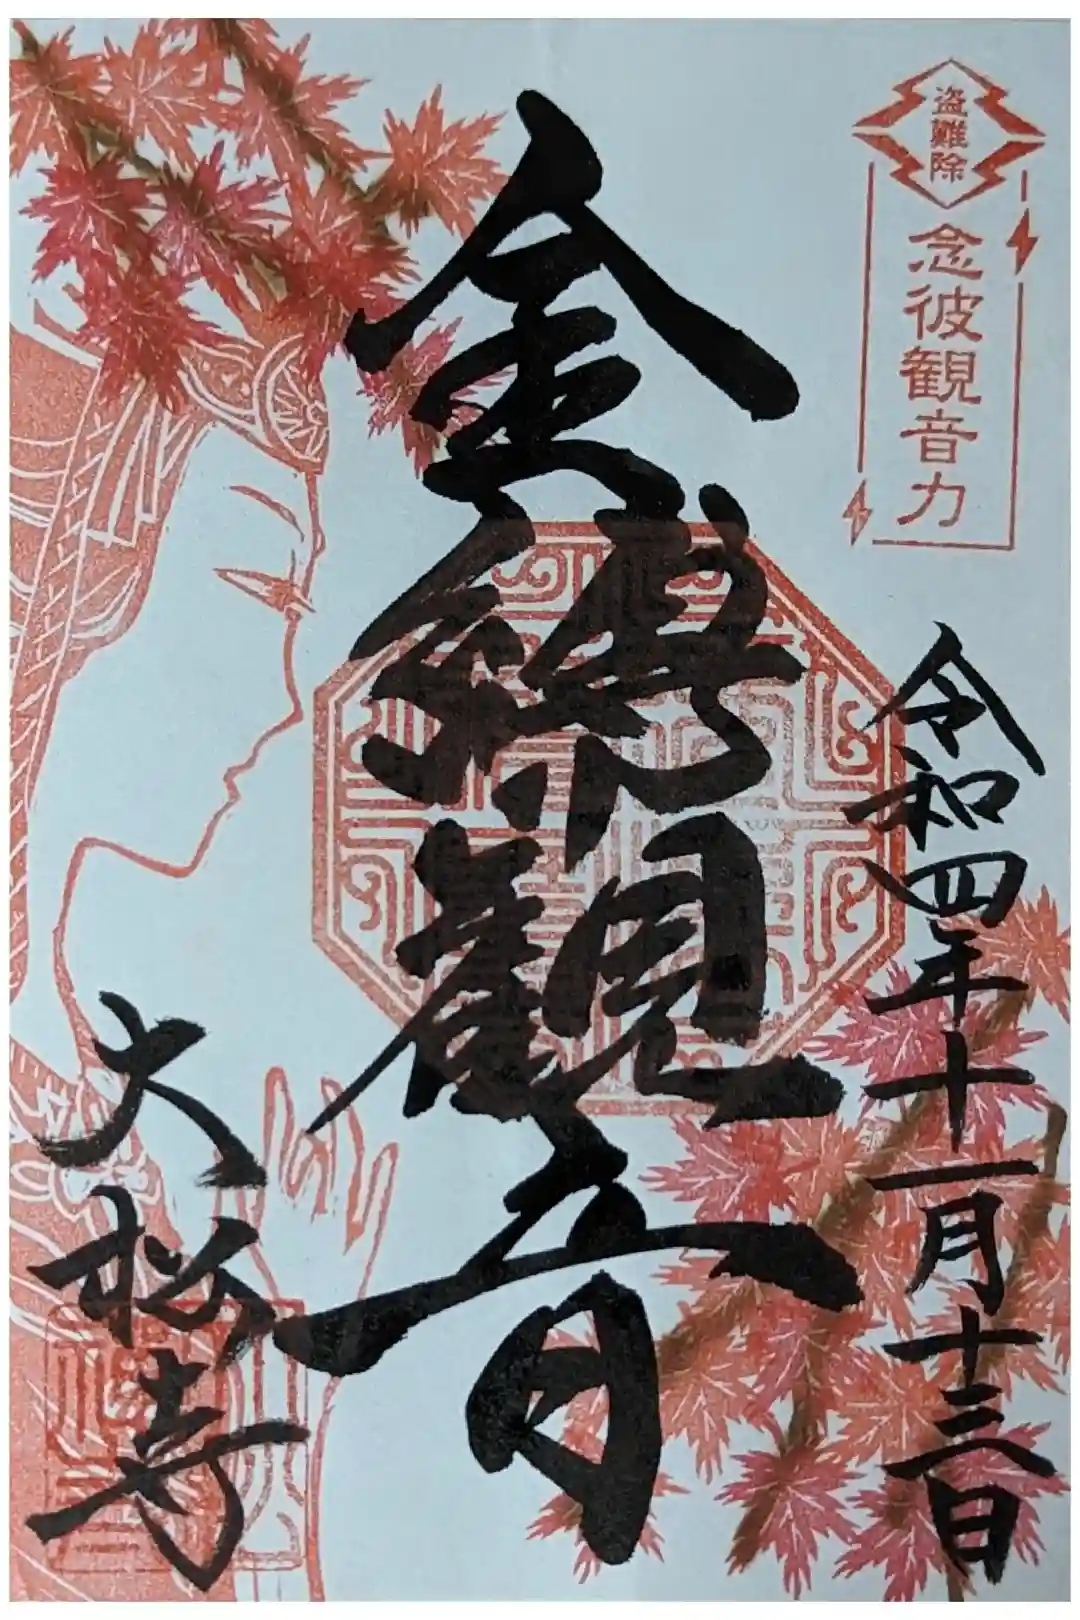 盗難除
念彼観音力
令和四年十一月十三日
金縛観音
大松寺